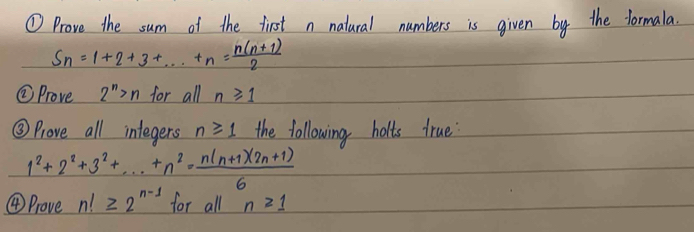 ① Prove the sum of the first n natural numbers is given by the formala.
Sn = 1+2+3+... +n = n(n+1)/2
② Prove 2ⁿ>n for all n ≥ 1
③ Prove all integers n ≥ 1 the following holts true:
1²+2²+3²+... +n² = n(n+1)(2n+1)/6
④ Prove n! ≥ 2ⁿ⁻¹ for all n ≥ 1